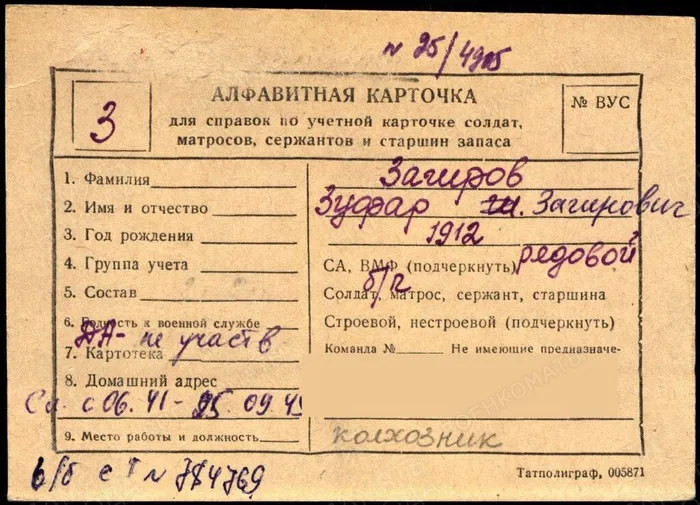 № 25/4915
АЛФАВИТНАЯ КАРТОЧКА
З
№ ВУС
для справок по учетной карточке солдат,
матросов, сержантов и старшин запаса
1. Фамилия Загиров
2. Имя и отчество Зуфар Загирович
3. Год рождения 1912
4. Группа учета СА, ВМФ (подчеркнуть) рядовой
б/п
5. Состав Солдат, матрос, сержант, старшина
6. Годность к военной службе Строевой, нестроевой (подчеркнуть)
не участв
7. Картотека Команда № Не имеющие предназначе-
8. Домашний адрес
Сл. с 06.41 - 25.09.45
9. Место работы и должность колхозник
в/б с Т № 784769
Татполиграф, 005871